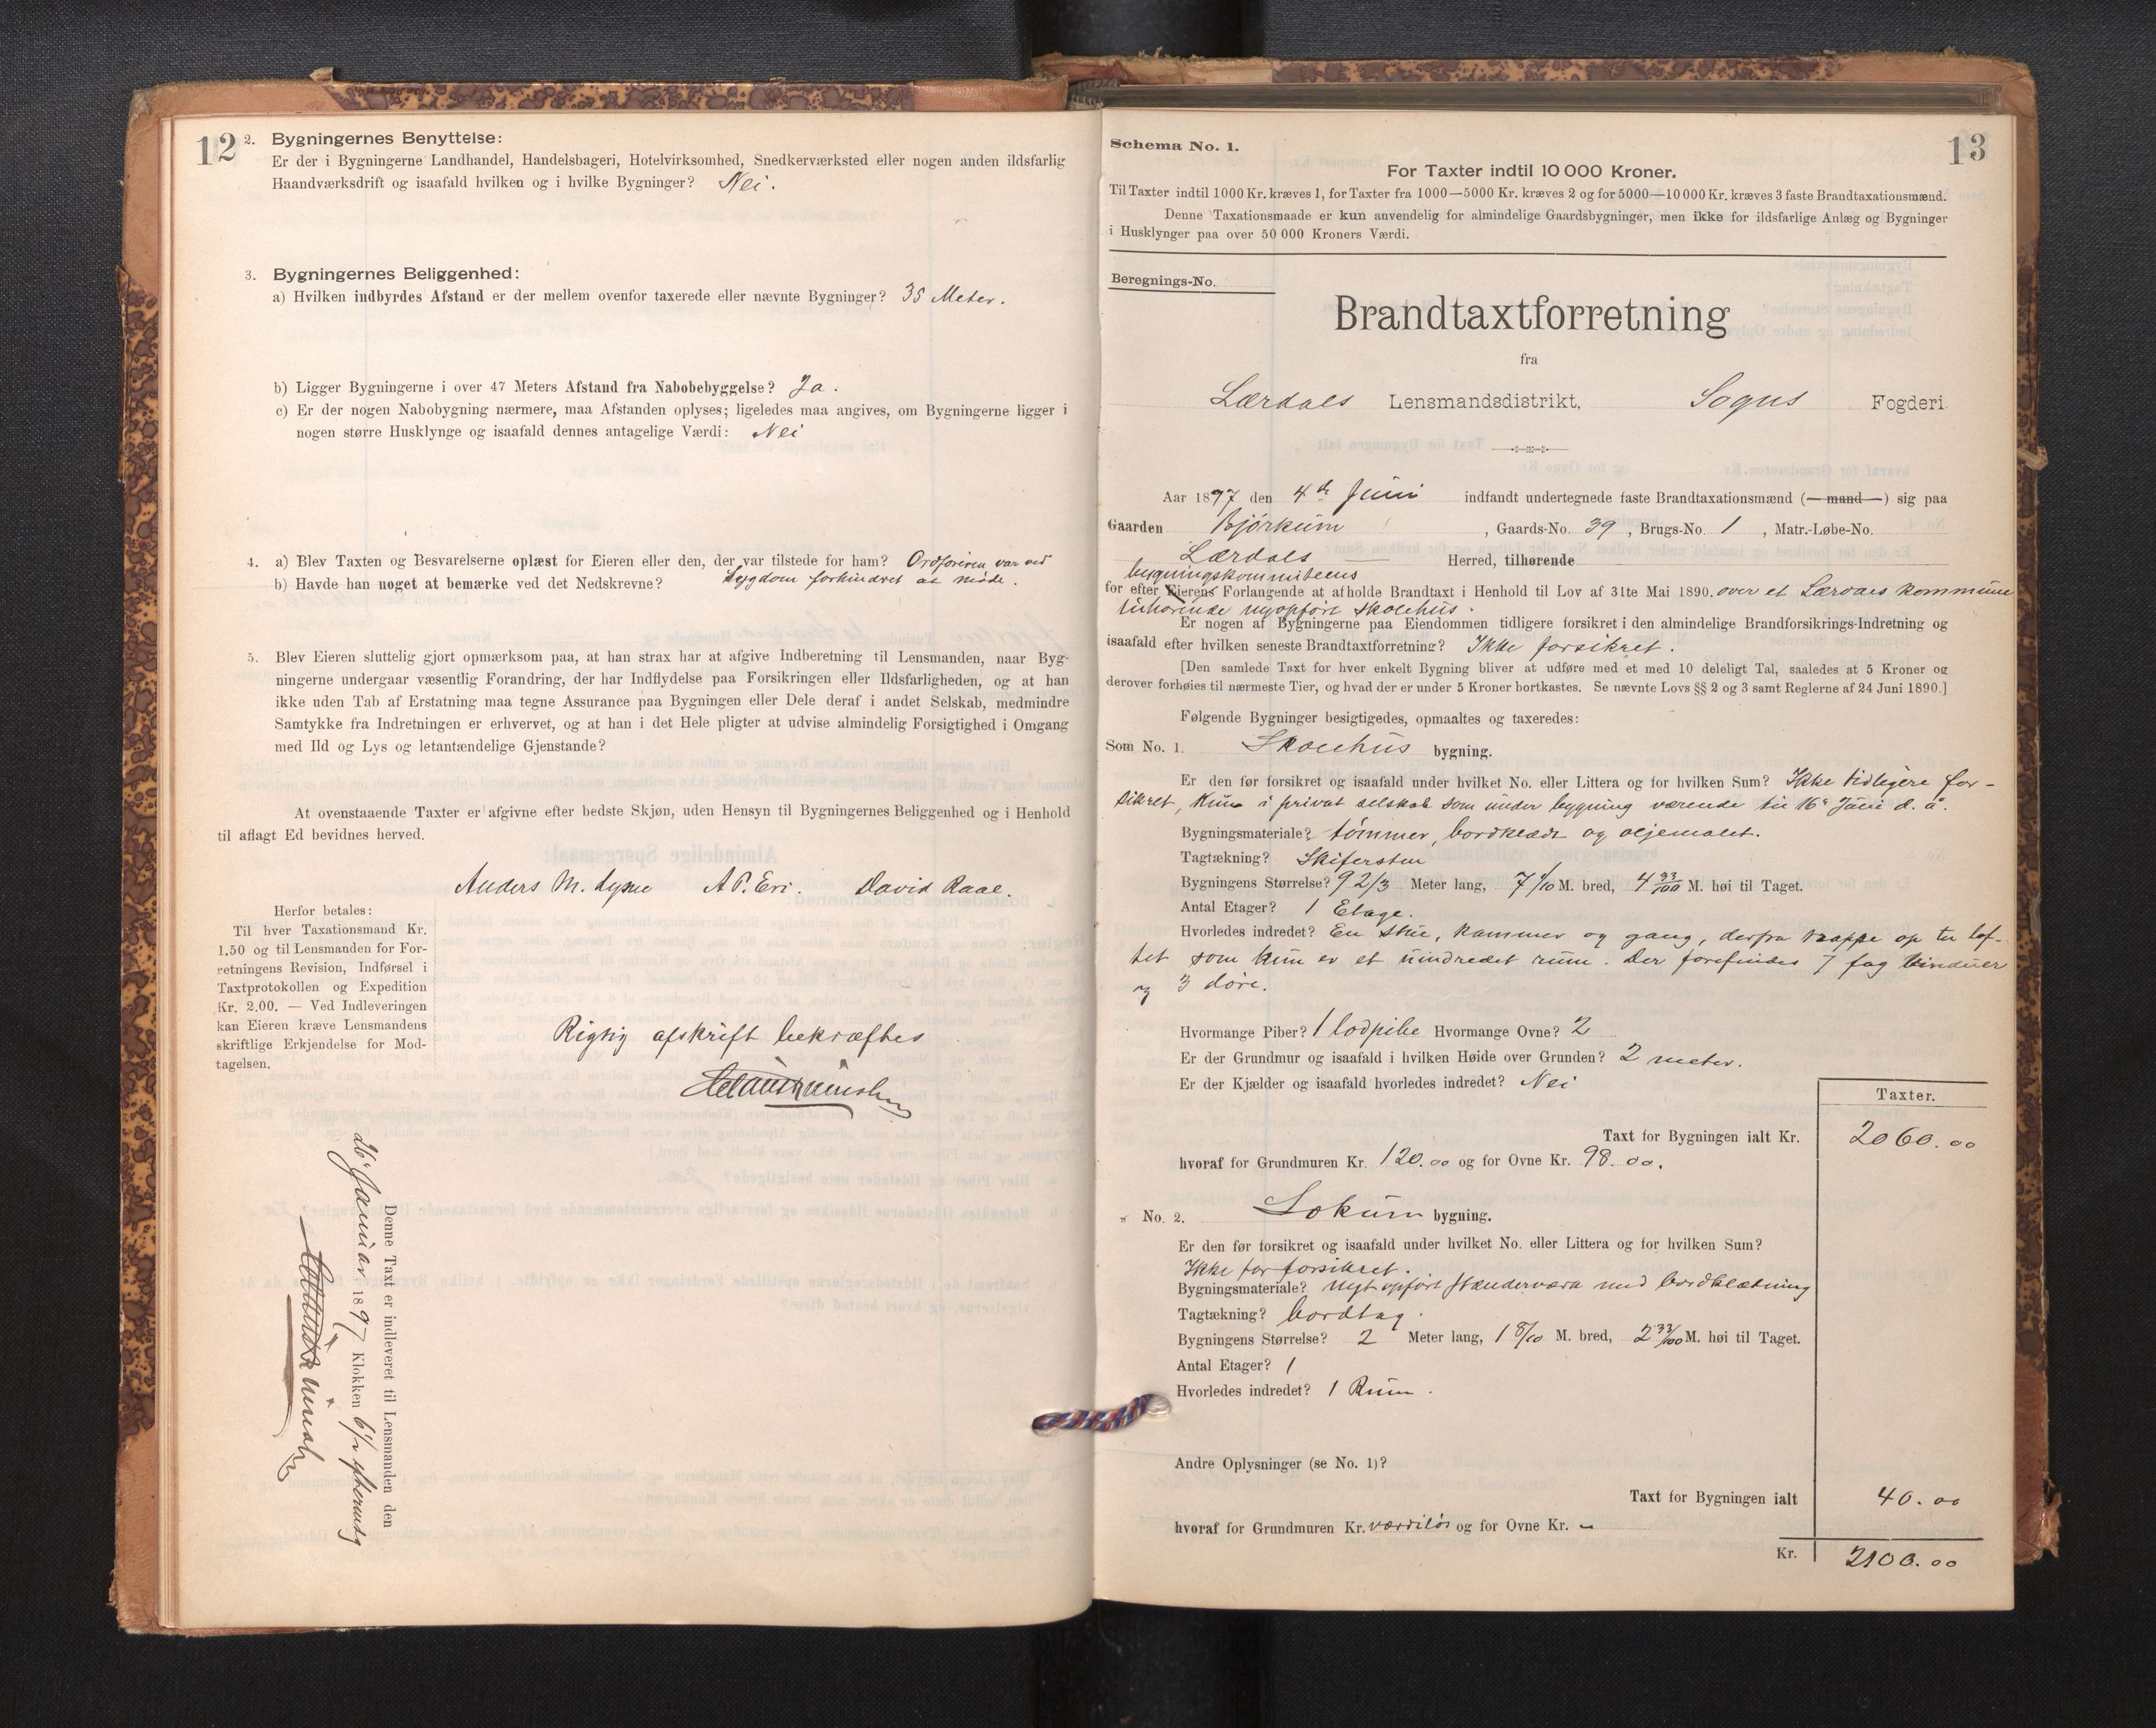 12
2. Bygningernes Benyttelse:
Er der i Bygningerne Landhandel, Handelsbageri, Hotelvirksomhed, Snedkerværksted eller nogen anden ildsfarlig
Haandværksdrift og isaafald hvilken og i hvilke Bygninger? Nei.
3. Bygningernes Beliggenhed:
a) Hvilken indbyrdes Afstand er der mellem ovenfor taxerede eller nævnte Bygninger? 35 Meter.
b) Ligger Bygningerne i over 47 Meters Afstand fra Nabobebyggelse? Ja.
c) Er der nogen Nabobygning nærmere, maa Afstanden oplyses; ligeledes maa angives, om Bygningerne ligger i
nogen større Husklynge og isaafald dennes antagelige Værdi: Nei
4. a) Blev Taxten og Besvarelserne oplæst for Eieren eller den, der var tilstede for ham? Ordføreren var ved
b) Havde han noget at bemærke ved det Nedskrevne? sygdom forhindret at møde.
5. Blev Eieren sluttelig gjort opmærksom paa, at han strax har at afgive Indberetning til Lensmanden, naar Byg-
ningerne undergaar væsentlig Forandring, der har Indflydelse paa Forsikringen eller Ildsfarligheden, og at han
ikke uden Tab af Erstatning maa tegne Assurance paa Bygningen eller Dele deraf i andet Selskab, medmindre
Samtykke fra Indretningen er erhvervet, og at han i det Hele pligter at udvise almindelig Forsigtighed i Omgang
med Ild og Lys og letantændelige Gjenstande?
At ovenstaaende Taxter er afgivne efter bedste Skjøn, uden Hensyn til Bygningernes Beliggenhed og i Henhold
til aflagt Ed bevidnes herved.
Anders M. Lysne A P. Eri. David Raae.
Herfor betales:
Til hver Taxationsmand Kr.
1.50 og til Lensmanden for For-
retningens Revision, Indførsel i
Taxtprotokollen og Expedition
Kr. 2.00. — Ved Indleveringen
kan Eieren kræve Lensmandens
skriftlige Erkjendelse for Mod-
tagelsen.
Rigtig afskrift bekræftes
Denne Taxt er indleveret til Lensmanden den
26 Januar 1897 Klokken 6 1/2
13
Schema No. 1.
For Taxter indtil 10 000 Kroner.
Til Taxter indtil 1000 Kr. kræves 1, for Taxter fra 1000—5000 Kr. kræves 2 og for 5000—10000 Kr. kræves 3 faste Brandtaxationsmænd.
Denne Taxationsmaade er kun anvendelig for almindelige Gaardsbygninger, men ikke for ildsfarlige Anlæg og Bygninger
i Husklynger paa over 50 000 Kroners Værdi.
Beregnings-No.
Brandtaxtforretning
fra
Lærdals Lensmandsdistrikt, Sogns Fogderi
Aar 1897 den 4de Juni indfandt undertegnede faste Brandtaxationsmænd (—mand—) sig paa
Gaarden Bjørkum, Gaards-No. 39, Brugs-No. 1, Matr.-Løbe-No.
Lærdals Herred, tilhørende
bygningskommiteens
for efter Eierens Forlangende at afholde Brandtaxt i Henhold til Lov af 31te Mai 1890. over et Lærdals kommune
tilhørende nyopført skolehus.
Er nogen af Bygningerne paa Eiendommen tidligere forsikret i den almindelige Brandforsikrings-Indretning og
isaafald efter hvilken seneste Brandtaxtforretning? Ikke forsikret.
[Den samlede Taxt for hver enkelt Bygning bliver at udføre med et med 10 deleligt Tal, saaledes at 5 Kroner og
derover forhøies til nærmeste Tier, og hvad der er under 5 Kroner bortkastes. Se nævnte Lovs §§ 2 og 3 samt Reglerne af 24 Juni 1890.]
Følgende Bygninger besigtigedes, opmaaltes og taxeredes:
Som No. 1. Skolehus bygning.
Er den før forsikret og isaafald under hvilket No. eller Littera og for hvilken Sum? Ikke tidligere for-
sikret, kun i privat selskab som under bygning værende til 16de Juni d. å.
Bygningsmateriale? tømmer, bordklæde og oljemalet.
Tagtækning? Skifersten
Bygningens Størrelse? 9 2/3 Meter lang, 7 1/10 M. bred, 4 33/100 M. høi til Taget.
Antal Etager? 1 Etage.
Hvorledes indredet? En stue, kammer og gang, derfra trappe op til lof-
tet som kun er et uindredet rum. Der forefindes 7 fag vinduer
og 3 døre.
Hvormange Piber? 1 lodpibe Hvormange Ovne? 2
Er der Grundmur og isaafald i hvilken Høide over Grunden? 2 meter.
Er der Kjælder og isaafald hvorledes indredet? Nei
Taxter.
Taxt for Bygningen ialt Kr. 2060.00
hvoraf for Grundmuren Kr. 120.00 og for Ovne Kr. 98.00.
" No. 2. Lokum bygning.
Er den før forsikret og isaafald under hvilket No. eller Littera og for hvilken Sum?
Ikke før forsikret.
Bygningsmateriale? Nyt opført stænderværk med bordklædning
Tagtækning? bordtag.
Bygningens Størrelse? 2 Meter lang, 1 8/10 M. bred, 2 33/100 M. høi til Taget.
Antal Etager? 1
Hvorledes indredet? 1 Rum.
Andre Oplysninger (se No. 1)?
Taxt for Bygningen ialt 40.00
hvoraf for Grundmuren Kr. værdiløs og for Ovne Kr. -
Kr. 2100.00